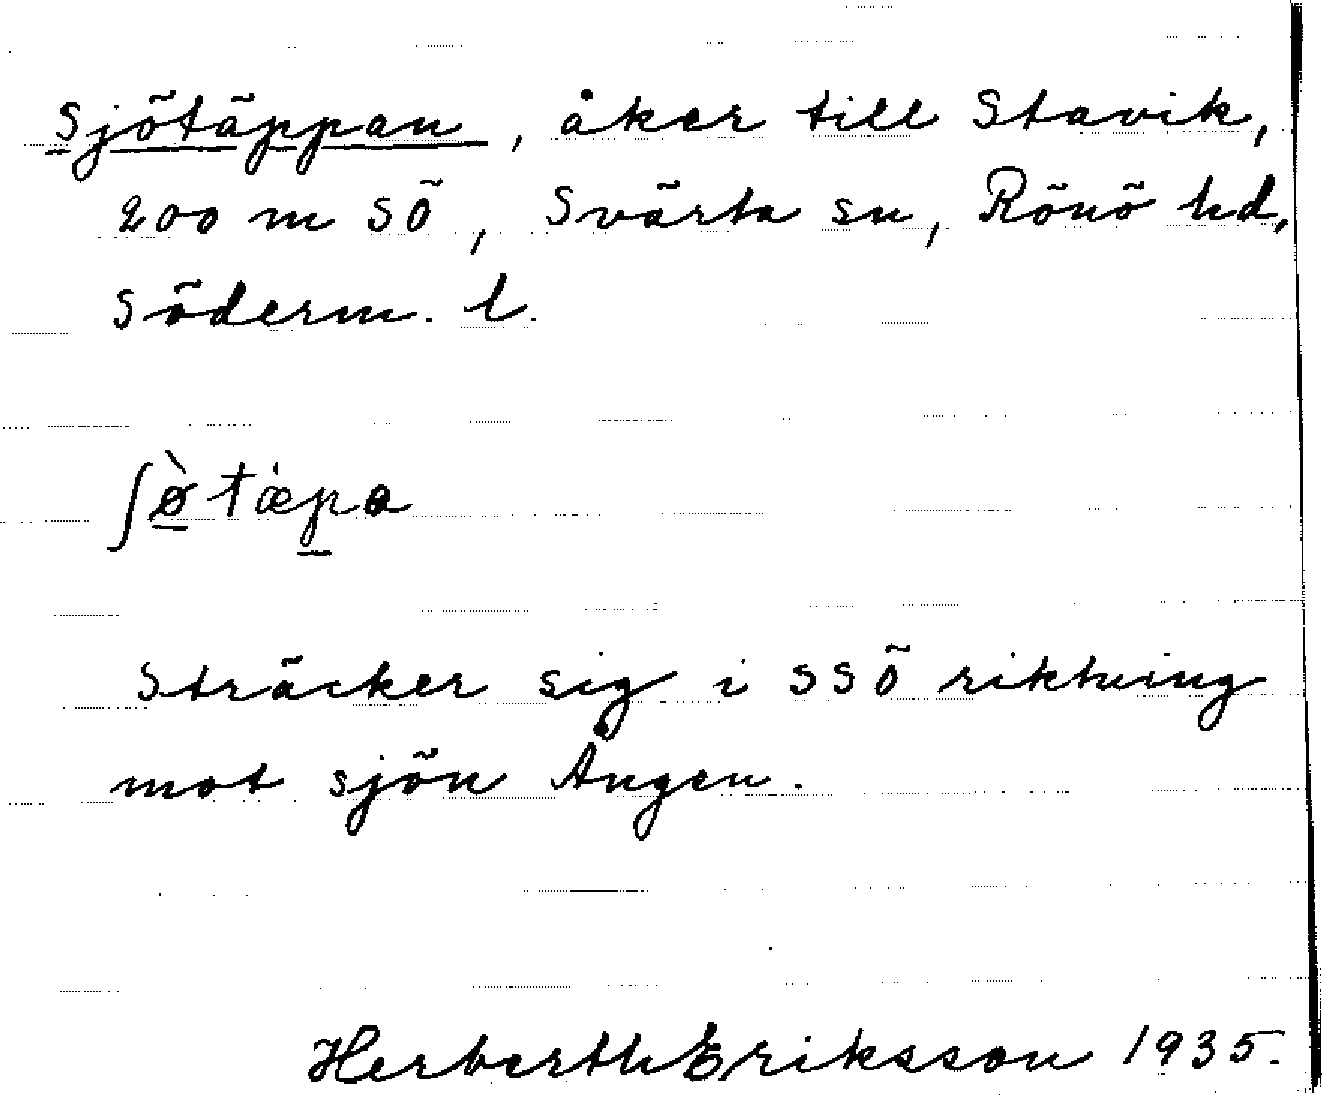 Sjötäppan, åker till Stavik,
200 m SÖ, Svärta sn, Rönö hd,
Söderm. l.
ʃø̀tæpa
Sträcker sig i SSÖ riktning
mot sjön Ången.
Herberth Eriksson 1935.